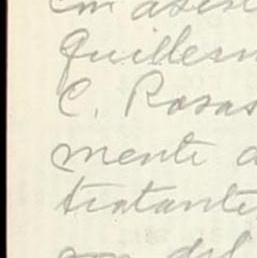 Guillerm
C. Rosas
mente a
tratante
del